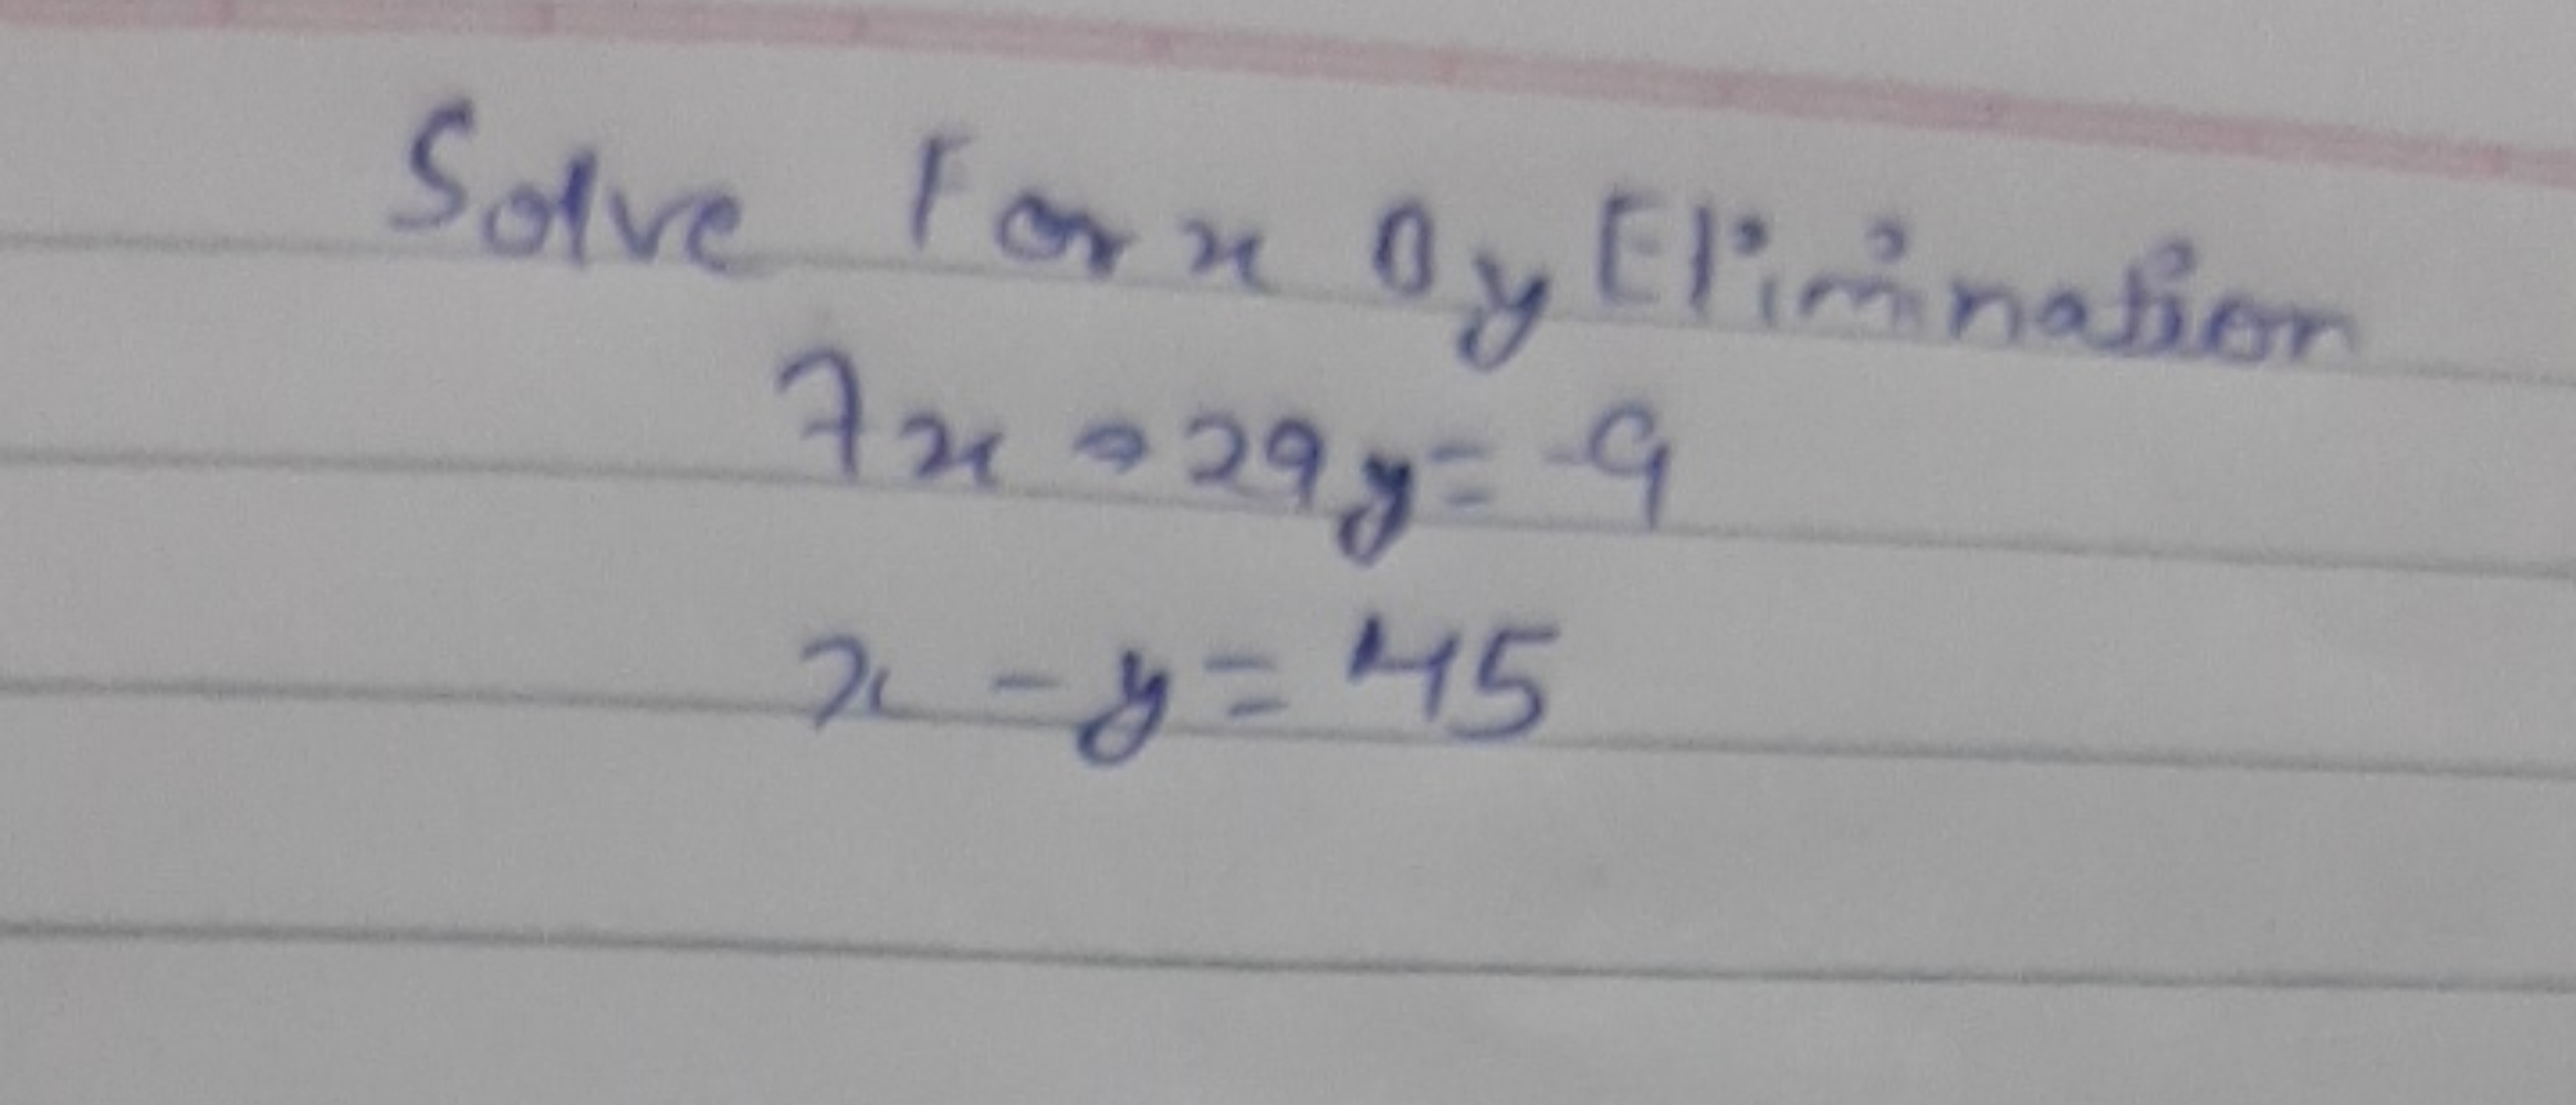 Solve For x By Elimination
7x - 29y = -9
x - y = 45